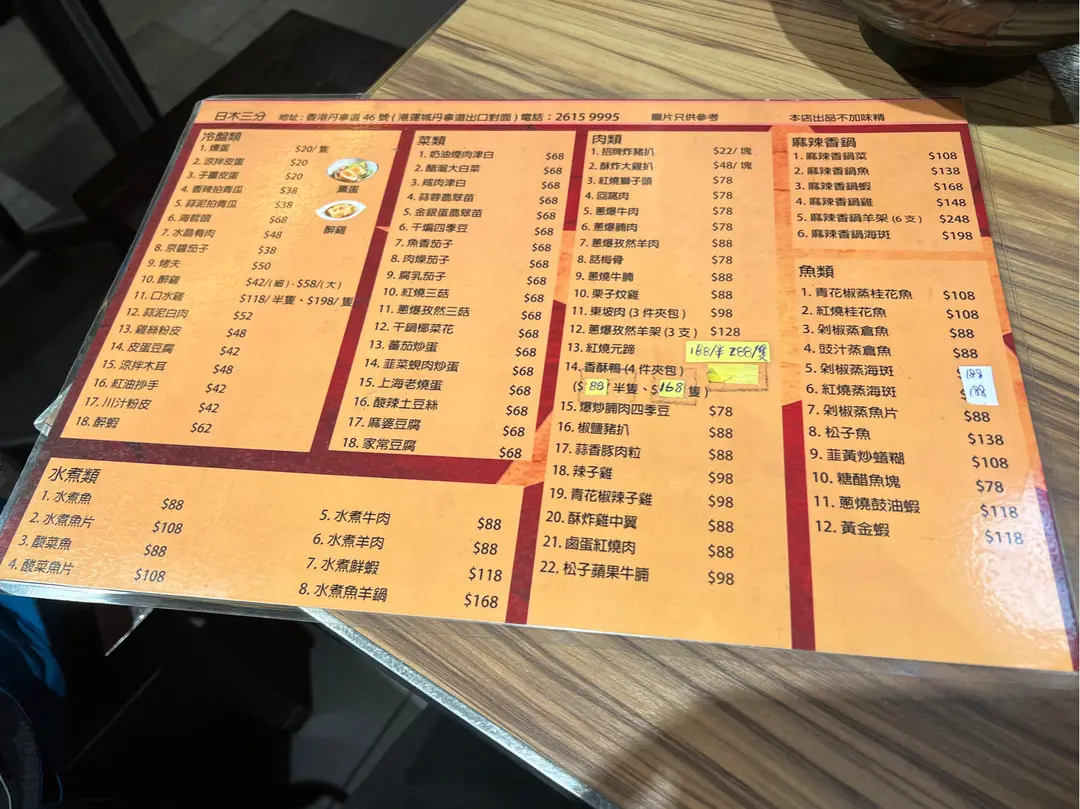 日木三分 地址：香港丹拿道 46 號 ( 港運城丹拿道出口對面 ) 電話：2615 9995 圖片只供參考 本店出品不加味精
冷盤類
1. 燻蛋 $20/ 隻
2. 涼拌皮蛋 $20
3. 子薑皮蛋 $20
4. 香辣拍青瓜 $38
5. 蒜泥拍青瓜 $38
6. 海蜇頭 $68
7. 水晶肴肉 $48
8. 京醬茄子 $38
9. 烤夫 $50
10. 醉雞 $42/( 細 )、$58/( 大 )
11. 口水雞 $118/ 半隻、$198/ 隻
12. 蒜泥白肉 $52
13. 雞絲粉皮 $48
14. 皮蛋豆腐 $42
15. 涼拌木耳 $48
16. 紅油抄手 $42
17. 川汁粉皮 $42
18. 醉蝦 $62
薰蛋
醉雞
菜類
1. 奶油煙肉津白 $68
2. 醋溜大白菜 $68
3. 咸肉津白 $68
4. 蒜蓉翡翠苗 $68
5. 金銀蛋翡翠苗 $68
6. 干煸四季豆 $68
7. 魚香茄子 $68
8. 肉燥茄子 $68
9. 腐乳茄子 $68
10. 紅燒三菇 $68
11. 蔥爆孜然三菇 $68
12. 干鍋椰菜花 $68
13. 蕃茄炒蛋 $68
14. 韮菜蜆肉炒蛋 $68
15. 上海老燒蛋 $68
16. 酸辣土豆絲 $68
17. 麻婆豆腐 $68
18. 家常豆腐 $68
肉類
1. 招牌炸豬扒 $22/ 塊
2. 酥炸大雞扒 $48/ 塊
3. 紅燒獅子頭 $78
4. 回窩肉 $78
5. 蔥爆牛肉 $78
6. 蔥爆腩肉 $78
7. 蔥爆孜然羊肉 $88
8. 話梅骨 $78
9. 蔥燒牛腩 $88
10. 栗子炆雞 $88
11. 東坡肉 (3 件夾包 ) $98
12. 蔥爆孜然羊架 (3 支 ) $128
13. 紅燒元蹄 168/半 288/隻
14. 香酥鴨 (4 件夾包 )
($ 88 半隻、$ 168 隻 )
15. 爆炒腩肉四季豆 $78
16. 椒鹽豬扒 $88
17. 蒜香豚肉粒 $88
18. 辣子雞 $98
19. 青花椒辣子雞 $98
20. 酥炸雞中翼 $88
21. 鹵蛋紅燒肉 $88
22. 松子蘋果牛腩 $98
麻辣香鍋
1. 麻辣香鍋菜 $108
2. 麻辣香鍋魚 $138
3. 麻辣香鍋蝦 $168
4. 麻辣香鍋雞 $148
5. 麻辣香鍋羊架 (6 支 ) $248
6. 麻辣香鍋海斑 $198
魚類
1. 青花椒蒸桂花魚 $108
2. 紅燒桂花魚 $108
3. 剁椒蒸倉魚 $88
4. 豉汁蒸倉魚 $88
5. 剁椒蒸海斑 188
6. 紅燒蒸海斑 188
7. 剁椒蒸魚片 $88
8. 松子魚 $138
9. 韮黃炒蟮糊 $108
10. 糖醋魚塊 $78
11. 蔥燒鼓油蝦 $118
12. 黃金蝦 $118
水煮類
1. 水煮魚 $88
2. 水煮魚片 $108
3. 酸菜魚 $88
4. 酸菜魚片 $108
5. 水煮牛肉 $88
6. 水煮羊肉 $88
7. 水煮鮮蝦 $118
8. 水煮魚羊鍋 $168